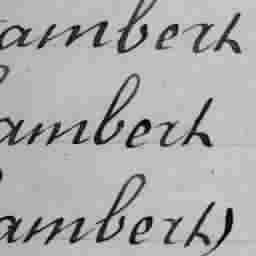 ambert
ambert
ambert)